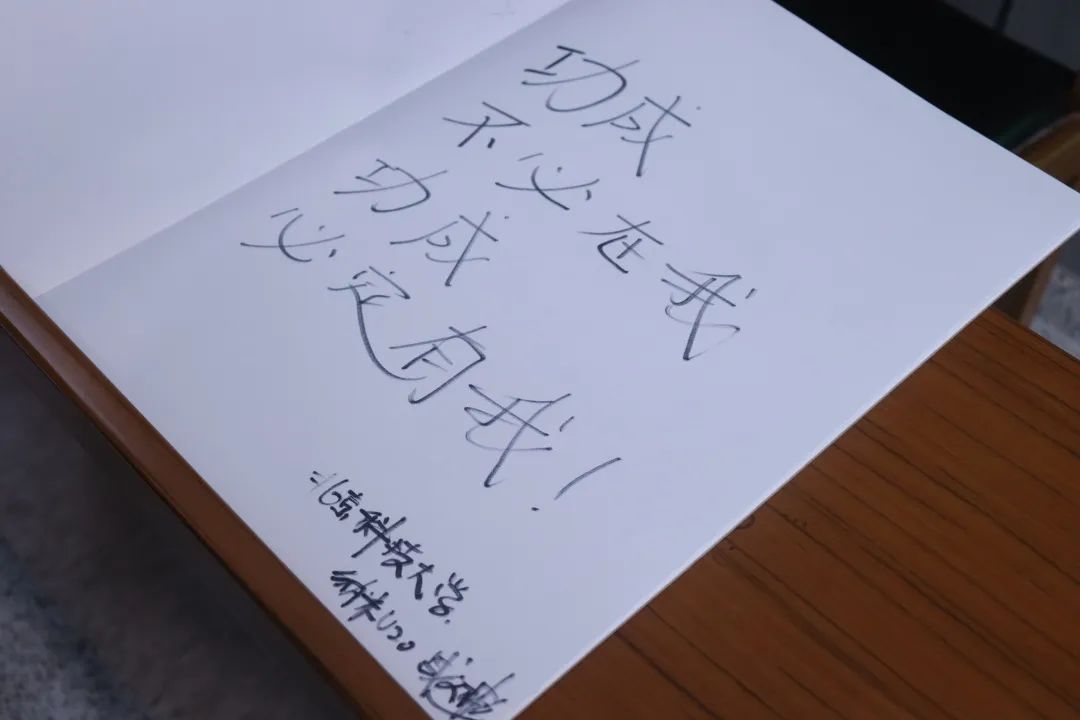 功成
不必在我
功成
必定有我！
北京科技大学
纳米U20